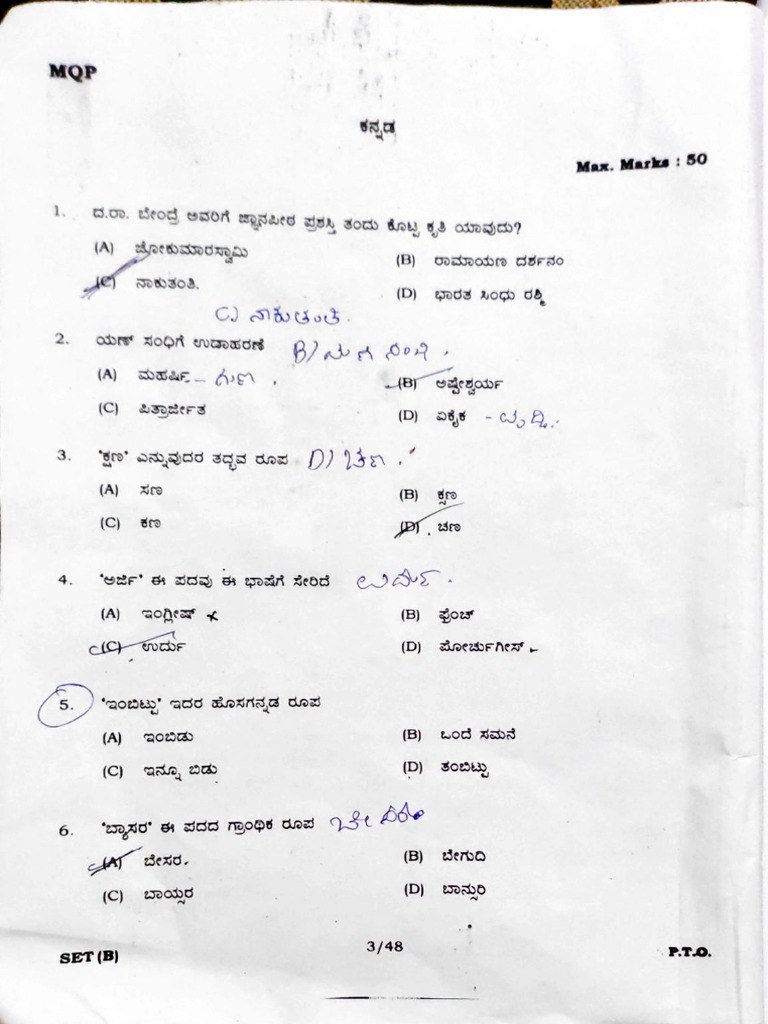 MQP
ಕನ್ನಡ
Max. Marks : 50
1. ದ.ರಾ. ಬೇಂದ್ರೆ ಅವರಿಗೆ ಜ್ಞಾನಪೀಠ ಪ್ರಶಸ್ತಿ ತಂದು ಕೊಟ್ಟ ಕೃತಿ ಯಾವುದು?
(A) ಜೋಕುಮಾರಸ್ವಾಮಿ (B) ರಾಮಾಯಣ ದರ್ಶನಂ
(C) ನಾಕುತಂತಿ. (D) ಭಾರತ ಸಿಂಧು ರಶ್ಮಿ
C) ನಾಕುತಂತಿ.
2. ಯಣ್ ಸಂಧಿಗೆ ಉದಾಹರಣೆ B)
(A) ಮಹರ್ಷಿ - ಗುಣ . (B) ಅಷ್ಟೇಶ್ವರ್ಯ
(C) ಪಿತ್ರಾರ್ಜಿತ (D) ಏಕೈಕ - ವೃದ್ಧಿ.
3. 'ಕ್ಷಣ' ಎನ್ನುವುದರ ತದ್ಭವ ರೂಪ D) ಚಣ .
(A) ಸಣ (B) ಕ್ಸಣ
(C) ಕಣ (D) . ಚಣ
4. 'ಅರ್ಜಿ' ಈ ಪದವು ಈ ಭಾಷೆಗೆ ಸೇರಿದೆ ಉರ್ದು .
(A) ಇಂಗ್ಲೀಷ್ x (B) ಫ್ರೆಂಚ್
(C) ಉರ್ದು (D) ಪೋರ್ಚುಗೀಸ್
5. 'ಇಂಬಿಟ್ಟು' ಇದರ ಹೊಸಗನ್ನಡ ರೂಪ
(A) ಇಂಬಿಡು (B) ಒಂದೆ ಸಮನೆ
(C) ಇನ್ನೂ ಬಿಡು (D) ತಂಬಿಟ್ಟು
6. 'ಬ್ಯಾಸರ' ಈ ಪದದ ಗ್ರಾಂಥಿಕ ರೂಪ ಬೇಸರ
(A) ಬೇಸರ. (B) ಬೇಗುದಿ
(C) ಬಾಯ್ಸರ (D) ಬಾನ್ಸುರಿ
SET (B) 3/48 P.T.O.